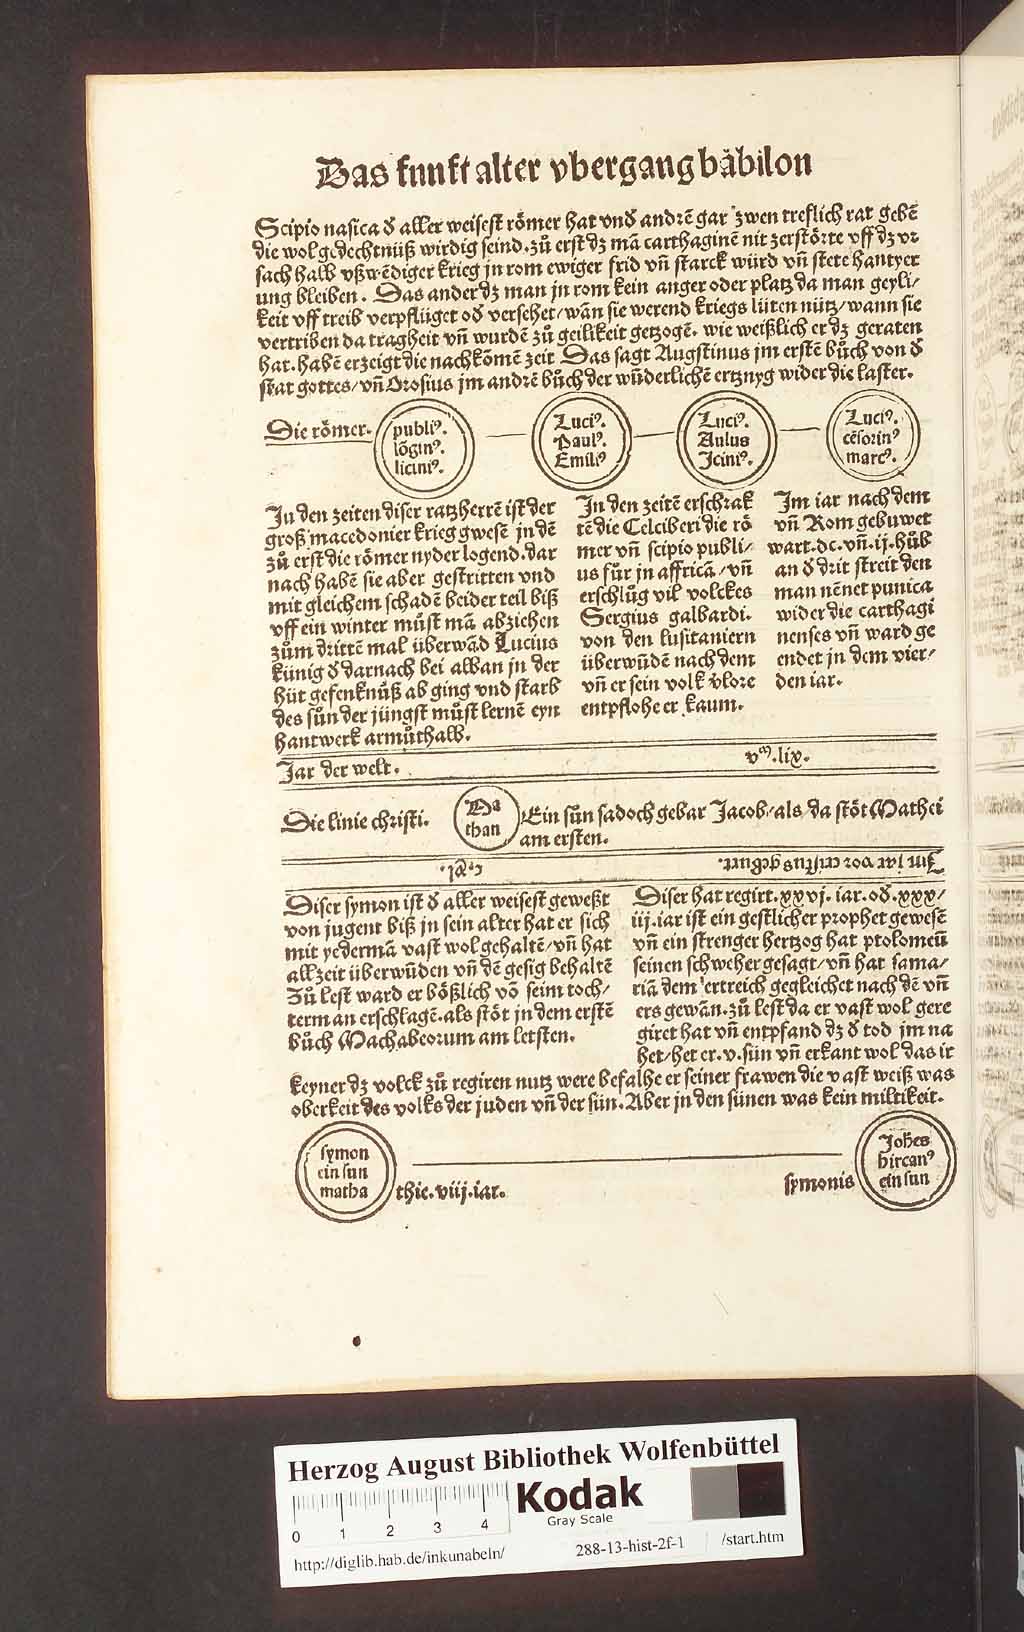 Das funft alter vbergang båbilon
Scipio nasica ď aller weisest rȯmer hat vnd andrē gar zwen treflich rat gebē
die wol gedechtnüß wirdig seind. zů erst dz mā carthaginē nit zerstȯrte vff dz vr
sach halb vßwēdiger krieg jn rom ewiger frid vn̄ starck würd vn̄ stete hantyer
ung bleiben. Das ander dz man jn rom kein anger oder platz da man geyli/
keit vff treib verpflüget od versehet/ wān sie werend kriegs lüten nütz/ wann sie
vertriben da tragheit vn̄ wurdē zů geilikeit getzogē. wie weißlich er dz geraten
hat. habē erzeigt die nachkȯmē zeit Das sagt Augstinus jm erstē bůch von ď
stat gottes/ vn̄ Orosius jm andrē bůch der wūderlichē ertznyg wider die laster.
Die rȯmer.
publiꝰ.
lōginꝰ.
liciniꝰ.
Luciꝰ.
Paulꝰ.
Emiliꝰ
Luciꝰ.
Aulus
Jciniꝰ.
Luciꝰ.
cēsorinꝰ
marcꝰ.
Jn den zeiten diser ratzherrē ist der
groß macedonier krieg gwesē jn dē
zů erst die rȯmer nyder logend. dar
nach habē sie aber gestritten vnd
mit gleichem schadē beider teil biß
vff ein winter můst mā abziehen
zům drittē mal überwād Lucius
künig ď darnach bei alban jn der
hüt gefenknůß ab ging vnd starb
des sůn der jüngst můst lernē eyn
hantwerk armůthalb.
Jn den zeitē erschrak
tē die Celciberi die rȯ
mer vn̄ scipio publi/
us fůr jn affricā/ vn̄
erschlůg vil volckes
Sergius galbardi.
von den lusitaniern
überwūdē nach dem
vn̄ er sein volk vlore
entpflohe er kaum.
Jm iar nach dem
vn̄ Rom gebuwet
wart. dc. vn̄. ij. hůb
an ď drit streit den
man nēnet punica
wider die carthagi
nenses vn̄ ward ge
endet jn dem vier/
den iar.
Jar der welt.
vᵐ. lix.
Die linie christi.
Da
than
Ein sun sadoch gebar Jacob/ als/ da stȯt Mathei
am ersten.
Jm jar vor cristus geburt.
c. xl.
Diser symon ist ď aller weisest geweßt
von jugent biß jn sein alter hat er sich
mit yedermā vast wol gehaltē/ vn̄ hat
allzeit überwūden vn̄ dē gesig behaltē
Zů lest ward er bȯßlich vō seim toch/
term an erschlagē. als stȯt jn dem erstē
bůch Machabeorum am letsten.
Diser hat regirt. xxvj. iar. od. xxx/
iij. iar ist ein gestlicher prophet gewesē
vn̄ ein strenger hertzog hat ptolomeū
seinen schweher gesagt/ vn̄ hat sama/
riā dem ertreich gegleichet nach dē vn̄
ers gewān. zů lest da er vast wol gere
giret hat vn̄ entpfand dz ď tod jm na
het/ het er. v. sün vn̄ erkant wol das ir
keyner dz volck zů regiren nutz were befalhe er seiner frawen die vast weiß was
oberkeit des volks der juden vn̄ der sün. Aber jn den sünen was kein miltikeit.
symon
ein sun
matha
thie. viij. iar.
symonis
Johēs
hircanꝰ
ein sun
Herzog August Bibliothek Wolfenbüttel
Kodak
Gray Scale
0 1 2 3 4
http://diglib.hab.de/inkunabeln/
288-13-hist-2f-1
/start.htm